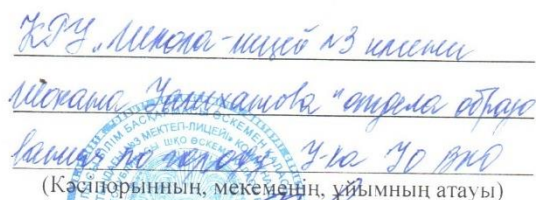 КГУ „Школа-лицей №3 имени
Шокана Уалиханова" отдела образо
вания по городу У-ка УО ВКО
(Кәсіпорынның, мекеменің, ұйымның атауы)